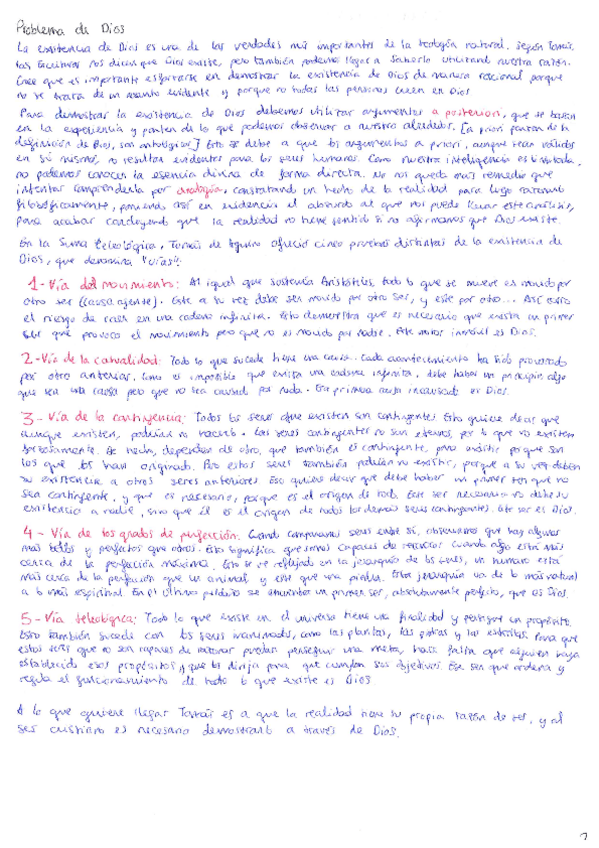 Problema de Dios
La existencia de Dios es una de las verdades más importantes de la teología natural. Según Tomás,
las Escrituras nos dicen que Dios existe, pero también podemos llegar a saberlo utilizando nuestra razón.
Cree que es importante esforzarse en demostrar la existencia de Dios de manera racional porque
no se trata de un asunto evidente y porque no todas las personas creen en Dios
Para demostrar la existencia de Dios debemos utilizar argumentos a posteriori, que se basan
en la experiencia y parten de lo que podemos observar a nuestro alrededor. [A priori parten de la
definición de Dios, son ontológicos] Esto se debe a que los argumentos a priori, aunque sean válidos
en sí mismos, no resultan evidentes para los seres humanos. Como nuestra inteligencia es limitada,
no podemos conocer la esencia divina de forma directa. No nos queda más remedio que
intentar comprenderla por analogía, constatando un hecho de la realidad para luego razonar
filosóficamente, poniendo así en evidencia el absurdo al que nos puede llevar este análisis,
para acabar concluyendo que la realidad no tiene sentido si no afirmamos que Dios existe.
En la Suma Teleológica, Tomás de Aquino ofreció cinco pruebas distintas de la existencia de
Dios, que denomina "vías":
1-Vía del movimiento: Al igual que sostenía Aristóteles, todo lo que se mueve es movido por
otro ser (causa agente). Este a su vez debe ser movido por otro ser, y este por otro... Así existe
el riesgo de caer en una cadena infinita. Esto demuestra que es necesario que exista un primer
ser que provocó el movimiento pero que no es movido por nadie. Este motor inmóvil es Dios.
2-Vía de la causalidad: Todo lo que sucede tiene una causa. Cada acontecimiento ha sido provocado
por otro anterior. Como es imposible que exista una cadena infinita, debe haber un principio algo
que sea una causa pero que no sea causado por nada. Esa primera causa incausada es Dios.
3-Vía de la contingencia: Todos los seres que existen son contingentes. Esto quiere decir que
aunque existen, podrían no hacerlo. Los seres contingentes no son eternos, por lo que no existen
forzosamente. De hecho, dependen de otro, que también es contingente, para existir porque son
los que los han originado. Pero estos seres también podrían no existir, porque a su vez deben
su existencia a otros seres anteriores. Eso quiere decir que debe haber un primer ser que no
sea contingente, y que es necesario, porque es el origen de todo. Este ser necesario no debe su
existencia a nadie, sino que él es el origen de todos los demás seres contingentes. Este ser es Dios.
4-Vía de los grados de perfección: Cuando comparamos seres entre sí, observamos que hay algunos
más bellos y perfectos que otros. Esto significa que somos capaces de reconocer cuando algo está más
cerca de la perfección máxima. Esto se ve reflejado en la jerarquía de los seres, un humano está
más cerca de la perfección que un animal y este que una piedra. Esta jerarquía va de lo más natural
a lo más espiritual. En el último peldaño se encuentra un primer ser, absolutamente perfecto, que es Dios.
5-Vía teleológica: Todo lo que existe en el universo tiene una finalidad y persigue un propósito.
Esto también sucede con los seres inanimados, como las plantas, las piedras y las estrellas. Para que
estos seres que no son capaces de razonar puedan perseguir una meta, hace falta que alguien haya
establecido esos propósitos y que los dirija para que cumplan sus objetivos. Ese ser que ordena y
regula el funcionamiento de todo lo que existe es Dios
A lo que quiere llegar Tomás es a que la realidad tiene su propia razón de ser, y al
ser cristiano es necesario demostrarlo a través de Dios.